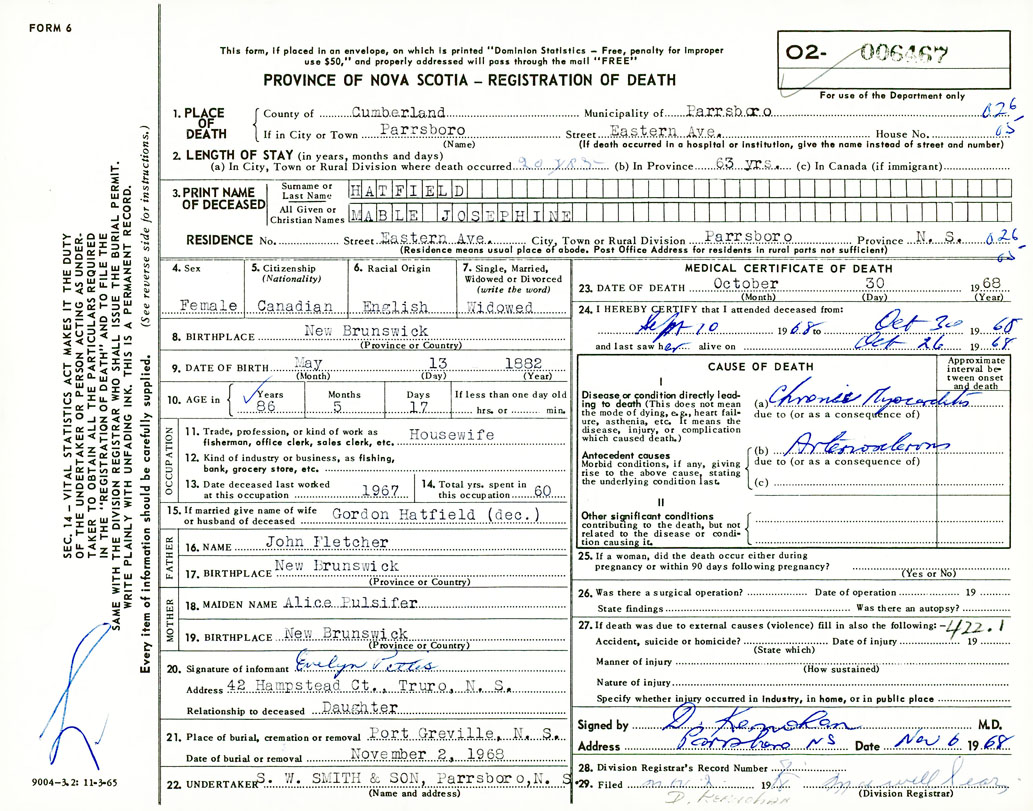 FORM 6
This form, if placed in an envelope, on which is printed "Dominion Statistics – Free, penalty for improper
use $50," and properly addressed will pass through the mail "FREE"
PROVINCE OF NOVA SCOTIA – REGISTRATION OF DEATH
O2- 006467
For use of the Department only
1. PLACE OF DEATH
County of Cumberland Municipality of Parrsboro 026
If in City or Town Parrsboro Street Eastern Ave. House No. 05
(Name) (If death occurred in a hospital or institution, give the name instead of street and number)
2. LENGTH OF STAY (in years, months and days)
(a) In City, Town or Rural Division where death occurred 20 yrs (b) In Province 63 yrs. (c) In Canada (if immigrant)
3. PRINT NAME OF DECEASED
Surname or Last Name HATFIELD
All Given or Christian Names MABLE JOSEPHINE
RESIDENCE No. Street Eastern Ave. City, Town or Rural Division Parrsboro Province N. S. 026
(Residence means usual place of abode. Post Office Address for residents in rural parts not sufficient) 05
4. Sex Female
5. Citizenship (Nationality) Canadian
6. Racial Origin English
7. Single, Married, Widowed or Divorced (write the word) Widowed
8. BIRTHPLACE New Brunswick
(Province or Country)
9. DATE OF BIRTH May 13 1882
(Month) (Day) (Year)
10. AGE in Years 86 Months 5 Days 17 If less than one day old hrs. or min.
OCCUPATION
11. Trade, profession, or kind of work as fisherman, office clerk, sales clerk, etc. Housewife
12. Kind of industry or business, as fishing, bank, grocery store, etc.
13. Date deceased last worked at this occupation 1967
14. Total yrs. spent in this occupation 60
15. If married give name of wife or husband of deceased Gordon Hatfield (dec.)
FATHER
16. NAME John Fletcher
17. BIRTHPLACE New Brunswick
(Province or Country)
MOTHER
18. MAIDEN NAME Alice Pulsifer
19. BIRTHPLACE New Brunswick
(Province or Country)
20. Signature of informant Evelyn
Address 42 Hampstead Ct., Truro, N. S.
Relationship to deceased Daughter
21. Place of burial, cremation or removal Port Greville, N. S.
Date of burial or removal November 2, 1968
22. UNDERTAKER S. W. SMITH & SON, Parrsboro, N. S.
(Name and address)
MEDICAL CERTIFICATE OF DEATH
23. DATE OF DEATH October 30 1968
(Month) (Day) (Year)
24. I HEREBY CERTIFY that I attended deceased from:
Sept 10 1968 to Oct 30 1968
and last saw her alive on Oct 26 1968
CAUSE OF DEATH
Approximate interval between onset and death
I
Disease or condition directly leading to death (This does not mean the mode of dying, e.g., heart failure, asthenia, etc. It means the disease, injury, or complication which caused death.)
(a) Chronic Myocarditis
due to (or as a consequence of)
Antecedent causes
Morbid conditions, if any, giving rise to the above cause, stating the underlying condition last.
(b)
due to (or as a consequence of)
(c)
II
Other significant conditions
contributing to the death, but not related to the disease or condition causing it.
25. If a woman, did the death occur either during
pregnancy or within 90 days following pregnancy?
(Yes or No)
26. Was there a surgical operation? Date of operation 19
State findings Was there an autopsy?
27. If death was due to external causes (violence) fill in also the following: - 422.1
Accident, suicide or homicide? Date of injury 19
(State which)
Manner of injury
(How sustained)
Nature of injury
Specify whether injury occurred in industry, in home, or in public place
Signed by D. Kernohan M.D.
Address Parrsboro NS Date Nov 6 1968
28. Division Registrar's Record Number
29. Filed 19
(Division Registrar)
D. Kernohan
SEC. 14 – VITAL STATISTICS ACT MAKES IT THE DUTY
OF THE UNDERTAKER OR PERSON ACTING AS UNDER-
TAKER TO OBTAIN ALL THE PARTICULARS REQUIRED
IN THE "REGISTRATION OF DEATH" AND TO FILE THE
SAME WITH THE DIVISION REGISTRAR WHO SHALL ISSUE THE BURIAL PERMIT.
WRITE PLAINLY WITH UNFADING INK. THIS IS A PERMANENT RECORD.
Every item of information should be carefully supplied. (See reverse side for instructions.)
9004-3.2: 11-3-65